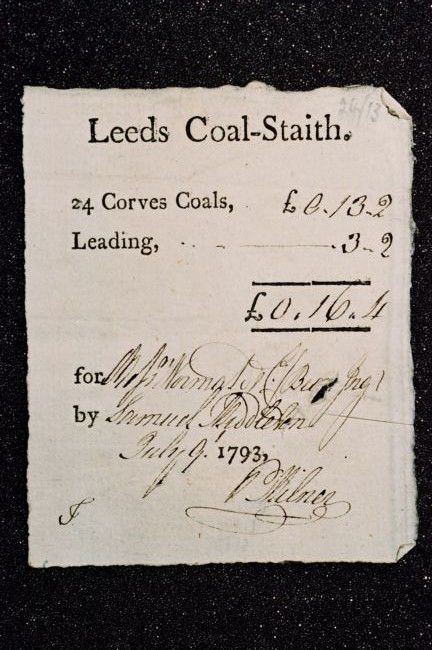 26/13
Leeds Coal-Staith.
24 Corves Coals, £0.13-2
Leading, 3-2
£0.16.4
for
by Samuel Myddleton
July 9. 1793,
Milner